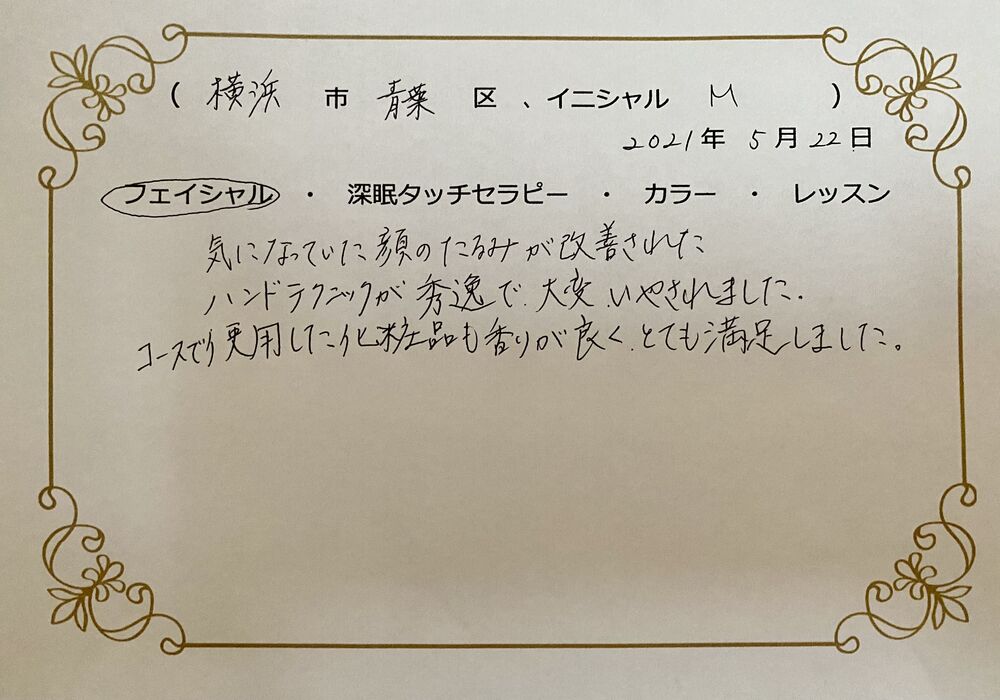 ( 横浜 市 青葉 区 、イニシャル M )
2021年 5月 22日
フェイシャル ・ 深眠タッチセラピー ・ カラー ・ レッスン
気になっていた顔のたるみが改善された
ハンドテクニックが秀逸で、大変、いやされました.
コースで使用した化粧品も香りが良く、とても満足しました。